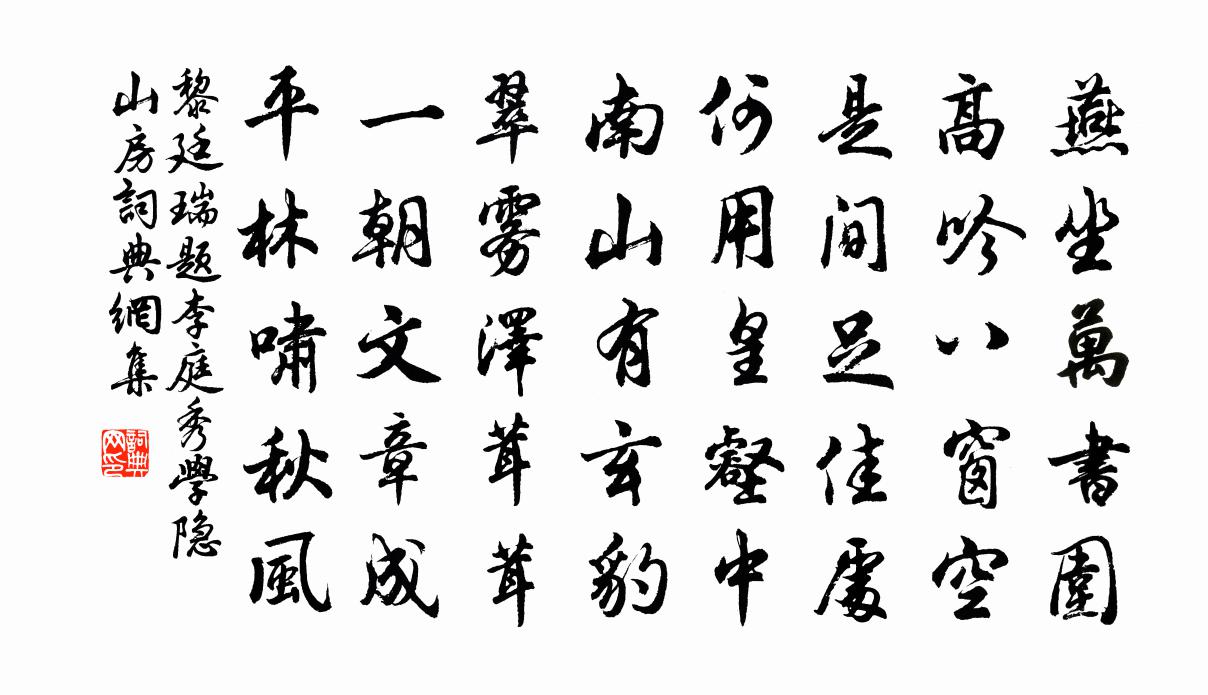 燕坐萬書圍
高吟八窗空
是间足佳處
何用皇壑中
南山有玄豹
翠雾澤茸茸
一朝文章成
平林啸秋風
黎廷瑞题李庭秀學隐
山房詞典網集
詞典网印